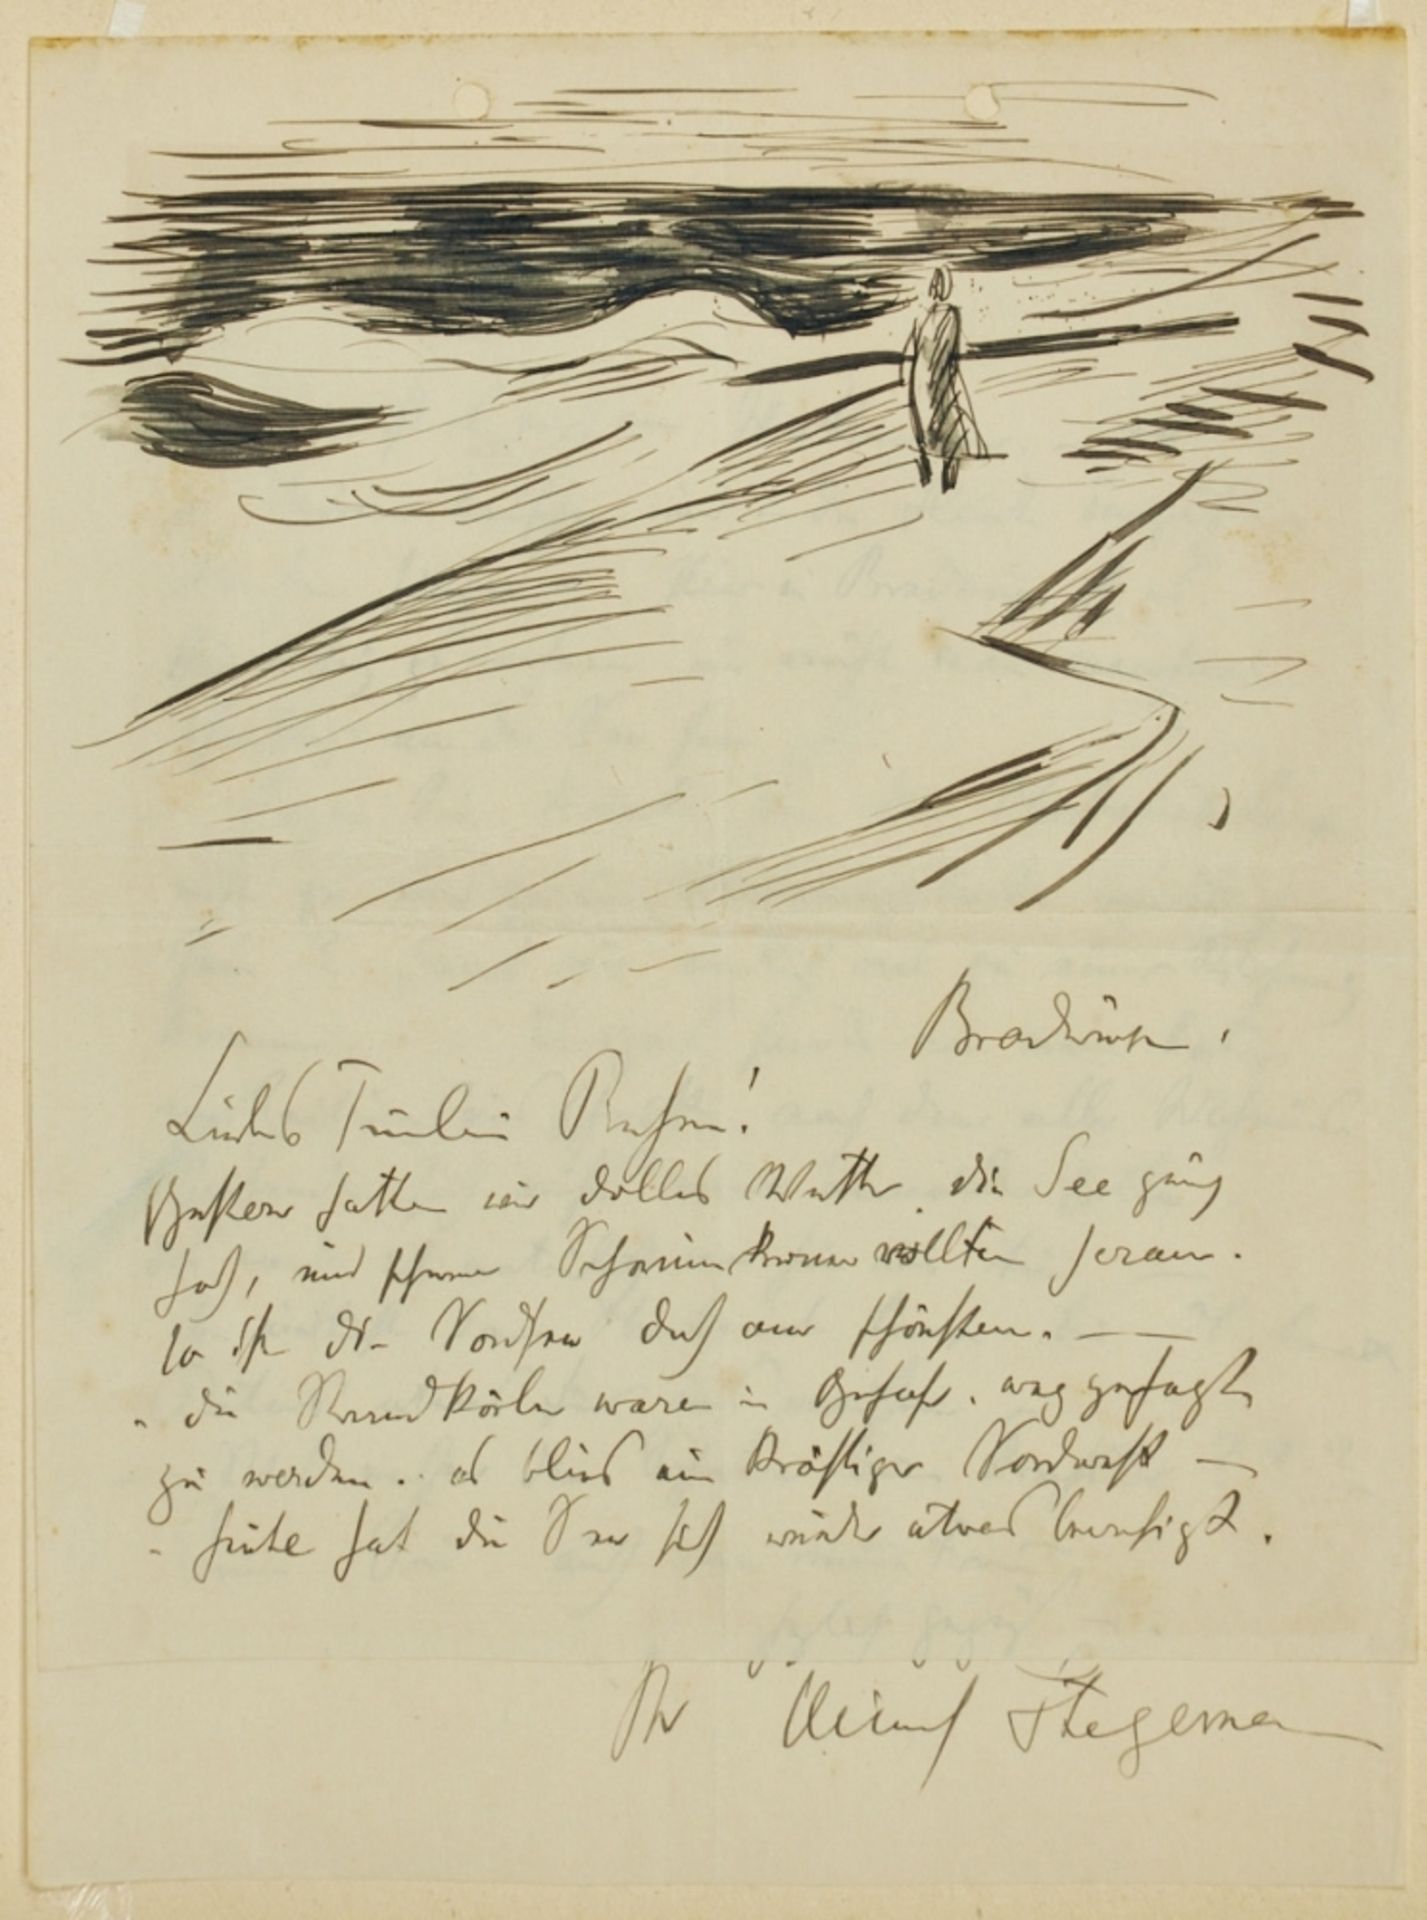 Liebes Fräulein Rehm!
Gestern hatten wir dolles Wetter. die See ging
hoch, und schwere Schaumkronen rollten heran.
so ist die Nordsee doch am schönsten. —
- die Strandkörbe waren in Gefahr. weggefegt
zu werden.. es blies ein kräftiger Nordwest —
- heute hat die See sich wieder etwas beruhigt.
Ihr Heinrich Stegemann